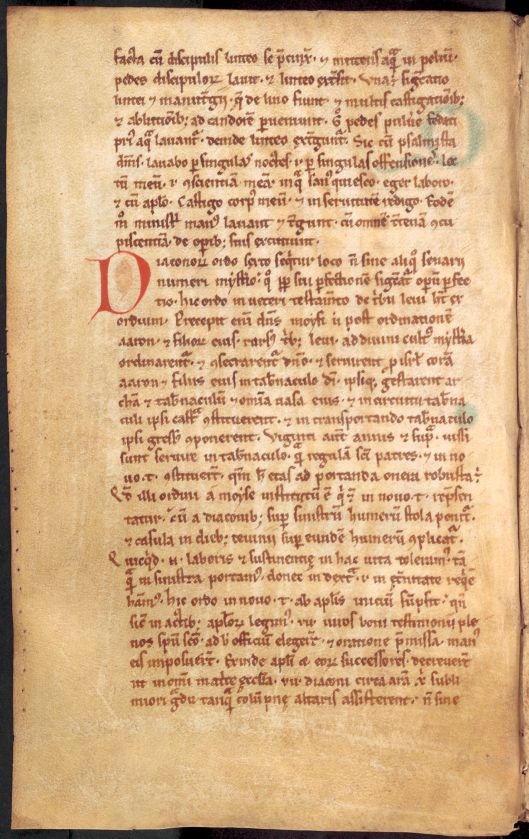 facta cū discipulis linteo se p̄cinx̄. ⁊ mittens aq̄ in peluī.
pedes discipulor̄ lauit. ⁊ linteo ext̄sit. Vnā siḡcatio
lintei ⁊ manut̄gii. q̄ de lino fiunt ⁊ multis castigationib;
⁊ ablutionib; ad candorē p̄ueniunt. pedes puluere fedati
pri aq̄ lauant̄. deinde linteo ext̄gunt̄. Sic cū psalmista
dicim̄. lauabo p singulas noctes. ł p singulas offensiones. lec
tū meū. ł ꝯscientiā meā in q̄ lan̄ quiesco. eger laboro.
⁊ cū aplo. Castigo corp̄ meū. ⁊ in seruitutē redigo. Eodē
m̄ ministri manus lauant ⁊ t̄gunt. cū omnē t̄renā ꝯcu
piscentiā. de operib; suis excutiunt.
Diaconor̄ ordo sexto seq̄tur loco n̄ sine aliq̄ senarii
numeri mysterio. q̄ pp̄ sui p̄fectionē siḡcat̄ operū p̄fec
tio. hic ordo in ueteri testam̄to de t̄bu leui h̄t ex
ordium. Precepit enī dn̄s moysi ut post ordinationē
aaron ⁊ filior̄ eius. rursꝰ t̄b; leui. ad diuini cultꝰ mysteria
ordinarent̄. ⁊ ꝯsecrarent̄ dn̄o. ⁊ seruirent p isrl̄ corā
aaron ⁊ filiis eius in tab̄naculo dī. ipsiq; gestarent ar
chā ⁊ tab̄naculū ⁊ omnia uasa eius. ⁊ in circuitu tab̄na
culi ipsi castra ꝯstituerent. ⁊ in transportando tab̄naculo
ipsi gressꝰ ꝯponerent. Viginti aut̄ annis ⁊ supra iussi
sunt seruire in tab̄naculo. q̄ regulā sc̄i patres. ⁊ in no
uo. t. ꝯstituerunt̄. qm̄ h̄ etas ad portanda onera robusta ē.
Vn̄ illi ordini a moyse institutū ē q̄ in nouo. t. rep̄sen
tatur. cū a diaconib; sup sinistrū humerū stola ponit̄.
⁊ casula in dieb; ieiunii sup eundē humerū ꝯplicat̄.
Quicq̄d .n. laboris ⁊ sustinentię in hac uita toleram̄. tā
q̄ in sinistra portam̄. donec in dext̄. ł in et̄nitate requiē
ham̄. hic ordo in nouo. t. ab aplis iniciū sūpsit. qn̄
sic̄ in actib; aplor̄ legim̄. vii uiros boni testimonii ple
nos spū sc̄o ad h̄ officiū elegerunt. ⁊ oratione p̄missa. manꝰ
eis imposuerunt. Exinde apli ⁊ eor̄ successores decreuerunt
ut in omni matre ęcclia. vii diaconi circa arā x̄ subli
miori gradu tanq̄ colūpnę altaris assisterent. n̄ sine